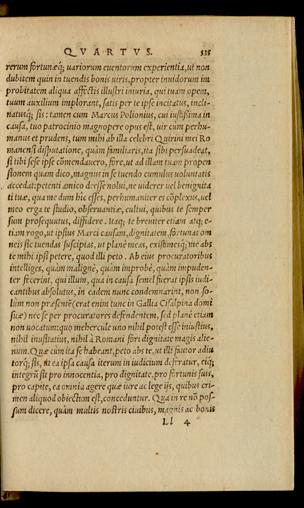 QVARTVS. 535
rerum fortunæq́; uariorum euentorum experientia, ut non
dubitem quin in tuendis bonis uiris, propter inuidorum im
probitatem aliqua affectis illustri iniuria, qui tuam opem,
tuum auxilium implorant, satis per te ipse incitatus, incli-
natusq́; sis: tamen cum Marcus Pollonius, cui iustissima in
causa, tuo patrocinio magnopere opus est, uir cum perhu-
manus et prudens, tum mihi ab illa celebri Quirini mei Ro
manensi disputatione, quàm familiaris, ita sibi persuadeat,
si tibi sese ipse cōmendauero, fore, ut ad illam tuam propen
sionem quam dico, magnus in se tuendo cumulus voluntatis
accedat: petenti amico deesse nolui, ne uiderer uel benignita
ti tuæ, qua me dum hic esses, perhumaniter es cōplexus, uel
meo erga te studio, obseruantiæ, cultui, quibus te semper
sum prosequutus, diffidere. Itaq; te breuiter etiam atq; e-
tiam rogo, ut ipsius Marci causam, dignitatem, fortunas om
neis sic tuendas suscipias, ut planè meas, existimesq́; me abs
te mihi ipsi petere, quod illi peto. Ab eius procuratoribus
intelliges, quàm malignè, quàm improbè, quàm impuden-
ter fecerint, qui illum, qua in causa semel fuerat ipsis iudi-
cantibus absolutus, in eadem nunc condemnarint, non so-
lùm non præsentē (erat enim tunc in Gallia Cisalpina domi
suæ) nec se per procuratores defendentem, sed planè etiam
non uocatum: quo mehercule uno nihil potest esse iniustius,
nihil inusitatius, nihil à Romani fori dignitate magis alie-
num. Quæ cùm ita se habeant, peto abs te, ut illi fiutor adiu
torq́; sis, ut ea ipsa causa iterum in iudicium deferatur, eiq;
integrū sit pro innocentia, pro dignitate, pro fortunis suis,
pro capite, ea omnia agere quæ iure ac lege ijs, quibus cri-
men aliquod obiectum est, conceduntur. Qua in re nō pos-
sum dicere, quàm multis nostris ciuibus, magnis ac bonis
Ll 4